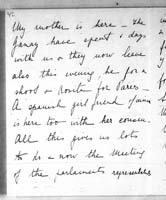 My mother is here – the
have spent 2 days
with us & they now leave
also this evening he for a
shoot & for Paris –
A spanish girl friend
is here too with her cousin.
All this gives us lots
to do & now the Meeting
of the parliaments